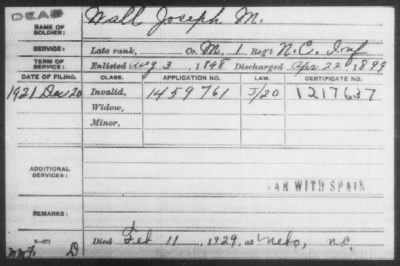 DEAD
NAME OF SOLDIER: Wall Joseph M.
SERVICE: Late rank, Co. M, 1 Regt N.C. Inf
TERM OF SERVICE: Enlisted Aug 3, 1898 Discharged Apr 22, 1899
DATE OF FILING. CLASS. APPLICATION NO. LAW. CERTIFICATE NO.
1921 Dec 20 Invalid, 1459761 J/20 1217637
Widow,
Minor,
ADDITIONAL SERVICES:
WAR WITH SPAIN
REMARKS:
Died Feb 11, 1929, at Nebo, N.C.